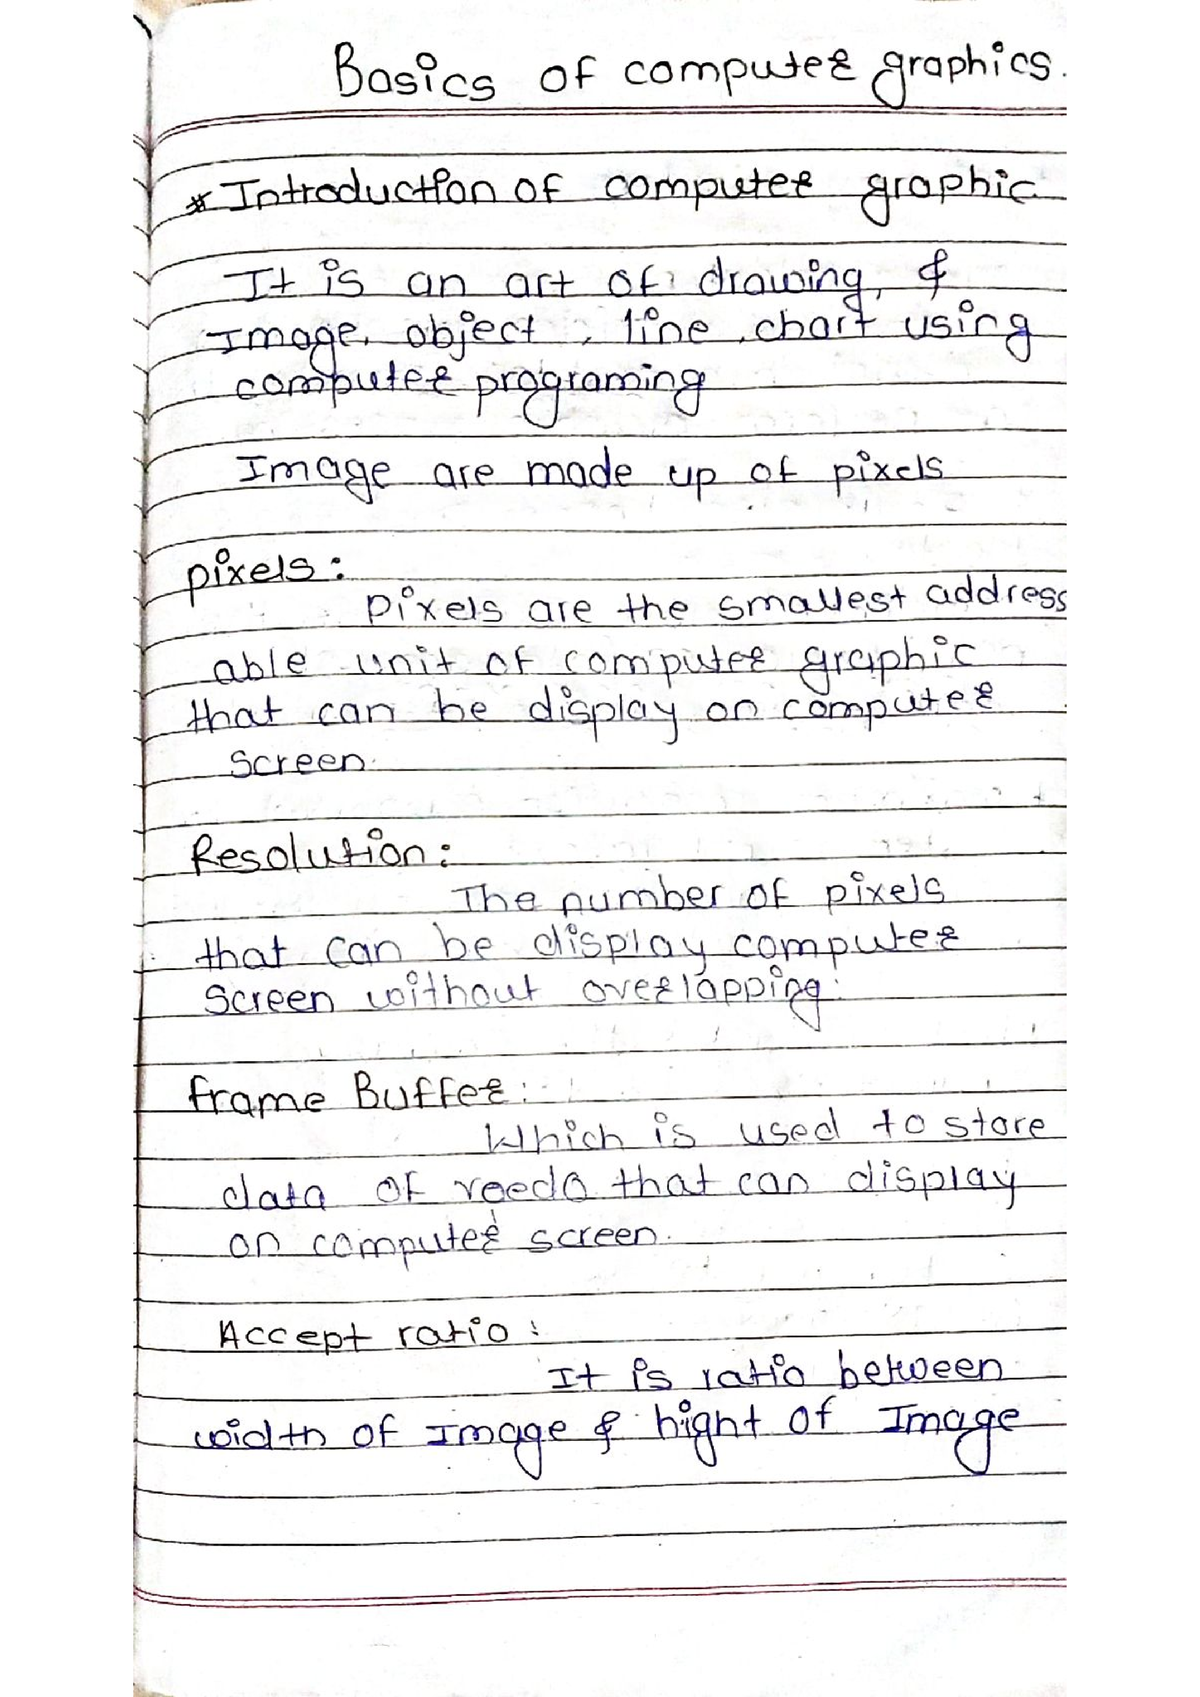 Basics of computer graphics.
* Introduction of computer graphic
It is an art of drawing, &
Image, object, line, chart using
computer programing
Image are made up of pixels
pixels:
pixels are the smallest address
able unit of computer graphic
that can be display on computer
screen.
Resolution:
The number of pixels
that can be display computer
screen without overlapping.
frame Buffer:
Which is used to store
data of that can display
on computer screen.
Accept ratio:
It is ratio between
width of Image & hight of Image